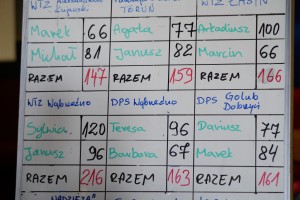 WTZ
TORUŃ
WTZ
Marek 66 Agata 77 Arkadiusz 100
Michał 81 Janusz 82 Marcin 66
RAZEM 147 RAZEM 159 RAZEM 166
WTZ Wąbrzeźno DPS Wąbrzeźno DPS Golub
Dobrzyń
Sylwia 120 Teresa 96 Dariusz 77
Janusz 96 Barbara 67 Marek 84
RAZEM 216 RAZEM 163 RAZEM 161
NADZIEJA"